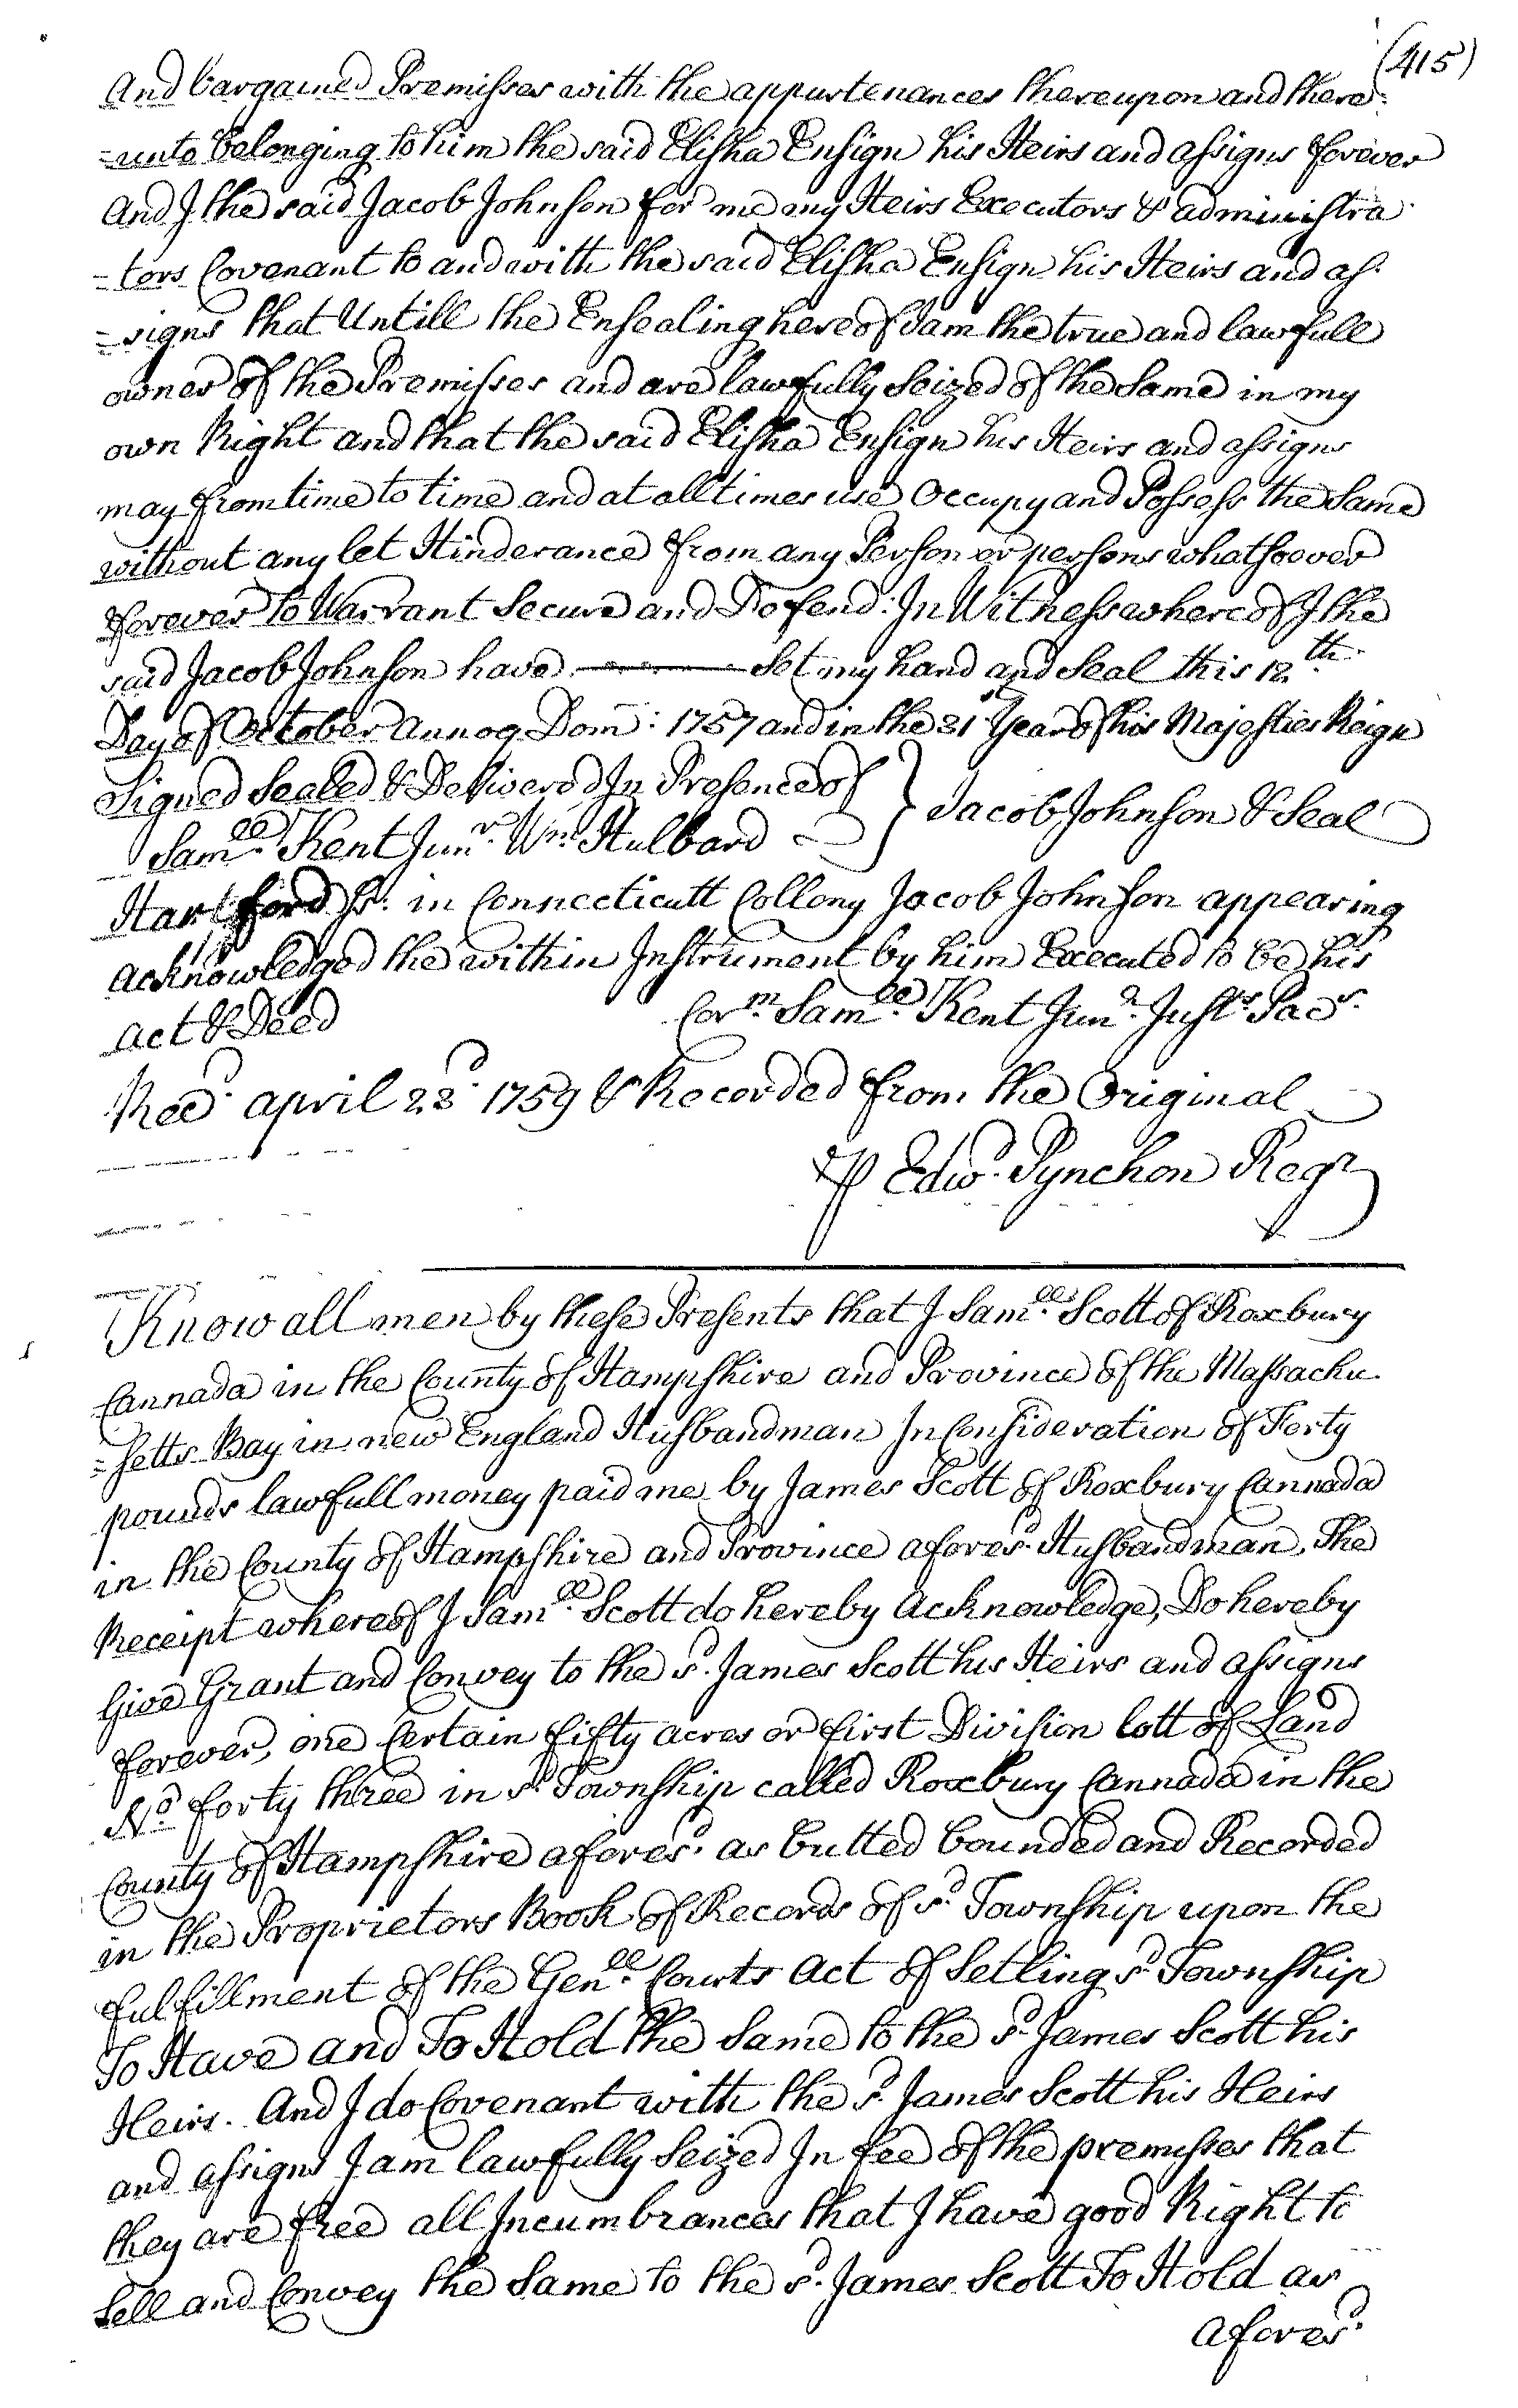 (415)
And bargained Premisses with the appurtenances thereupon and there=
=unto belonging to him the said Elisha Ensign his Heirs and assigns forever
And I the said Jacob Johnson for me my Heirs Executors & administra
=tors Covenant to and with the said Elisha Ensign his Heirs and as:
=signs that Untill the Ensealing hereof I am the true and lawfull
owner of the Premisses and are lawfully Seized of the Same in my
own Right and that the said Elisha Ensign his Heirs and assigns
may from time to time and at all times use Occupy and Possess the Same
without any let Hinderance from any Person or persons whatsoever
forever to Warrant Secure and Defend: In Witness whereof I the
said Jacob Johnson have ——— Set my hand and Seal this 12th
Day of October Annoq Dom: 1757 and in the 31 Year of his Majesties Reign
Signed Sealed & Delivered In Presence of } Jacob Johnson & Seal
Samll. Kent Junr. Wm. Hulbard
Hartford Ss. in Connecticutt Collony Jacob Johnson appearing
acknowledged the within Instrument by him Executed to be his
act & Deed Corm. Samll. Kent Junr. Justs. Pacs.
Recd. april 23d. 1759 & Recorded from the Original
⅌ Edwd. Pynchon Regr
Know all men by these Presents that I Samll. Scott of Roxbury
Cannada in the County of Hampshire and Province of the Massachu
=setts Bay in new England Husbandman In Consideration of Forty
pounds lawfull money paid me by James Scott of Roxbury Cannada
in the County of Hampshire and Province aforesd. Husbandman, The
Receipt whereof I Samll. Scott do hereby Acknowledge, Do hereby
Give Grant and Convey to the sd. James Scott his Heirs and assigns
forever, one Certain fifty acres or first Division lott of Land
No. forty three in sd. Township called Roxbury Cannada in the
County of Hampshire aforesd. as butted bounded and Recorded
in the Proprietors Book of Records of sd. Township upon the
fulfillment of the Genll. Courts Act of Setling sd. Township
To Have and To Hold the Same to the sd. James Scott his
Heirs. And I do Covenant with the sd. James Scott his Heirs
and assigns I am lawfully Seized In fee of the premisses that
they are free all Incumbrances that I have good Right to
Sell and Convey the Same to the sd. James Scott To Hold as
aforesd.